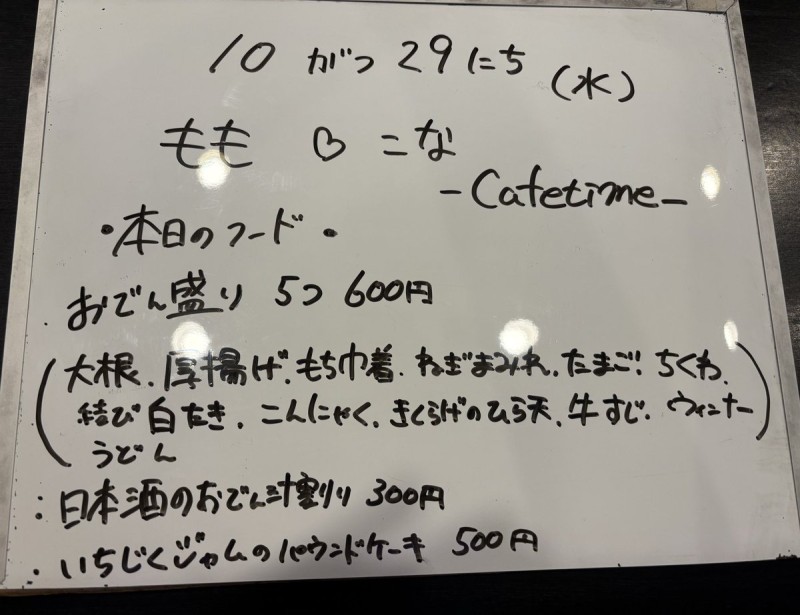 10 がつ 29 にち (水)
もも ♡ こな
-Cafetime-
・本日のフード・
・おでん盛り 5つ 600円
(大根、厚揚げ、もち巾着、ねぎまみれ、たまご、ちくわ、
結び白たき、こんにゃく、きくらげのひら天、牛すじ、ウィンナー
うどん)
:日本酒のおでん汁割り 300円
・いちじくジャムのパウンドケーキ 500円